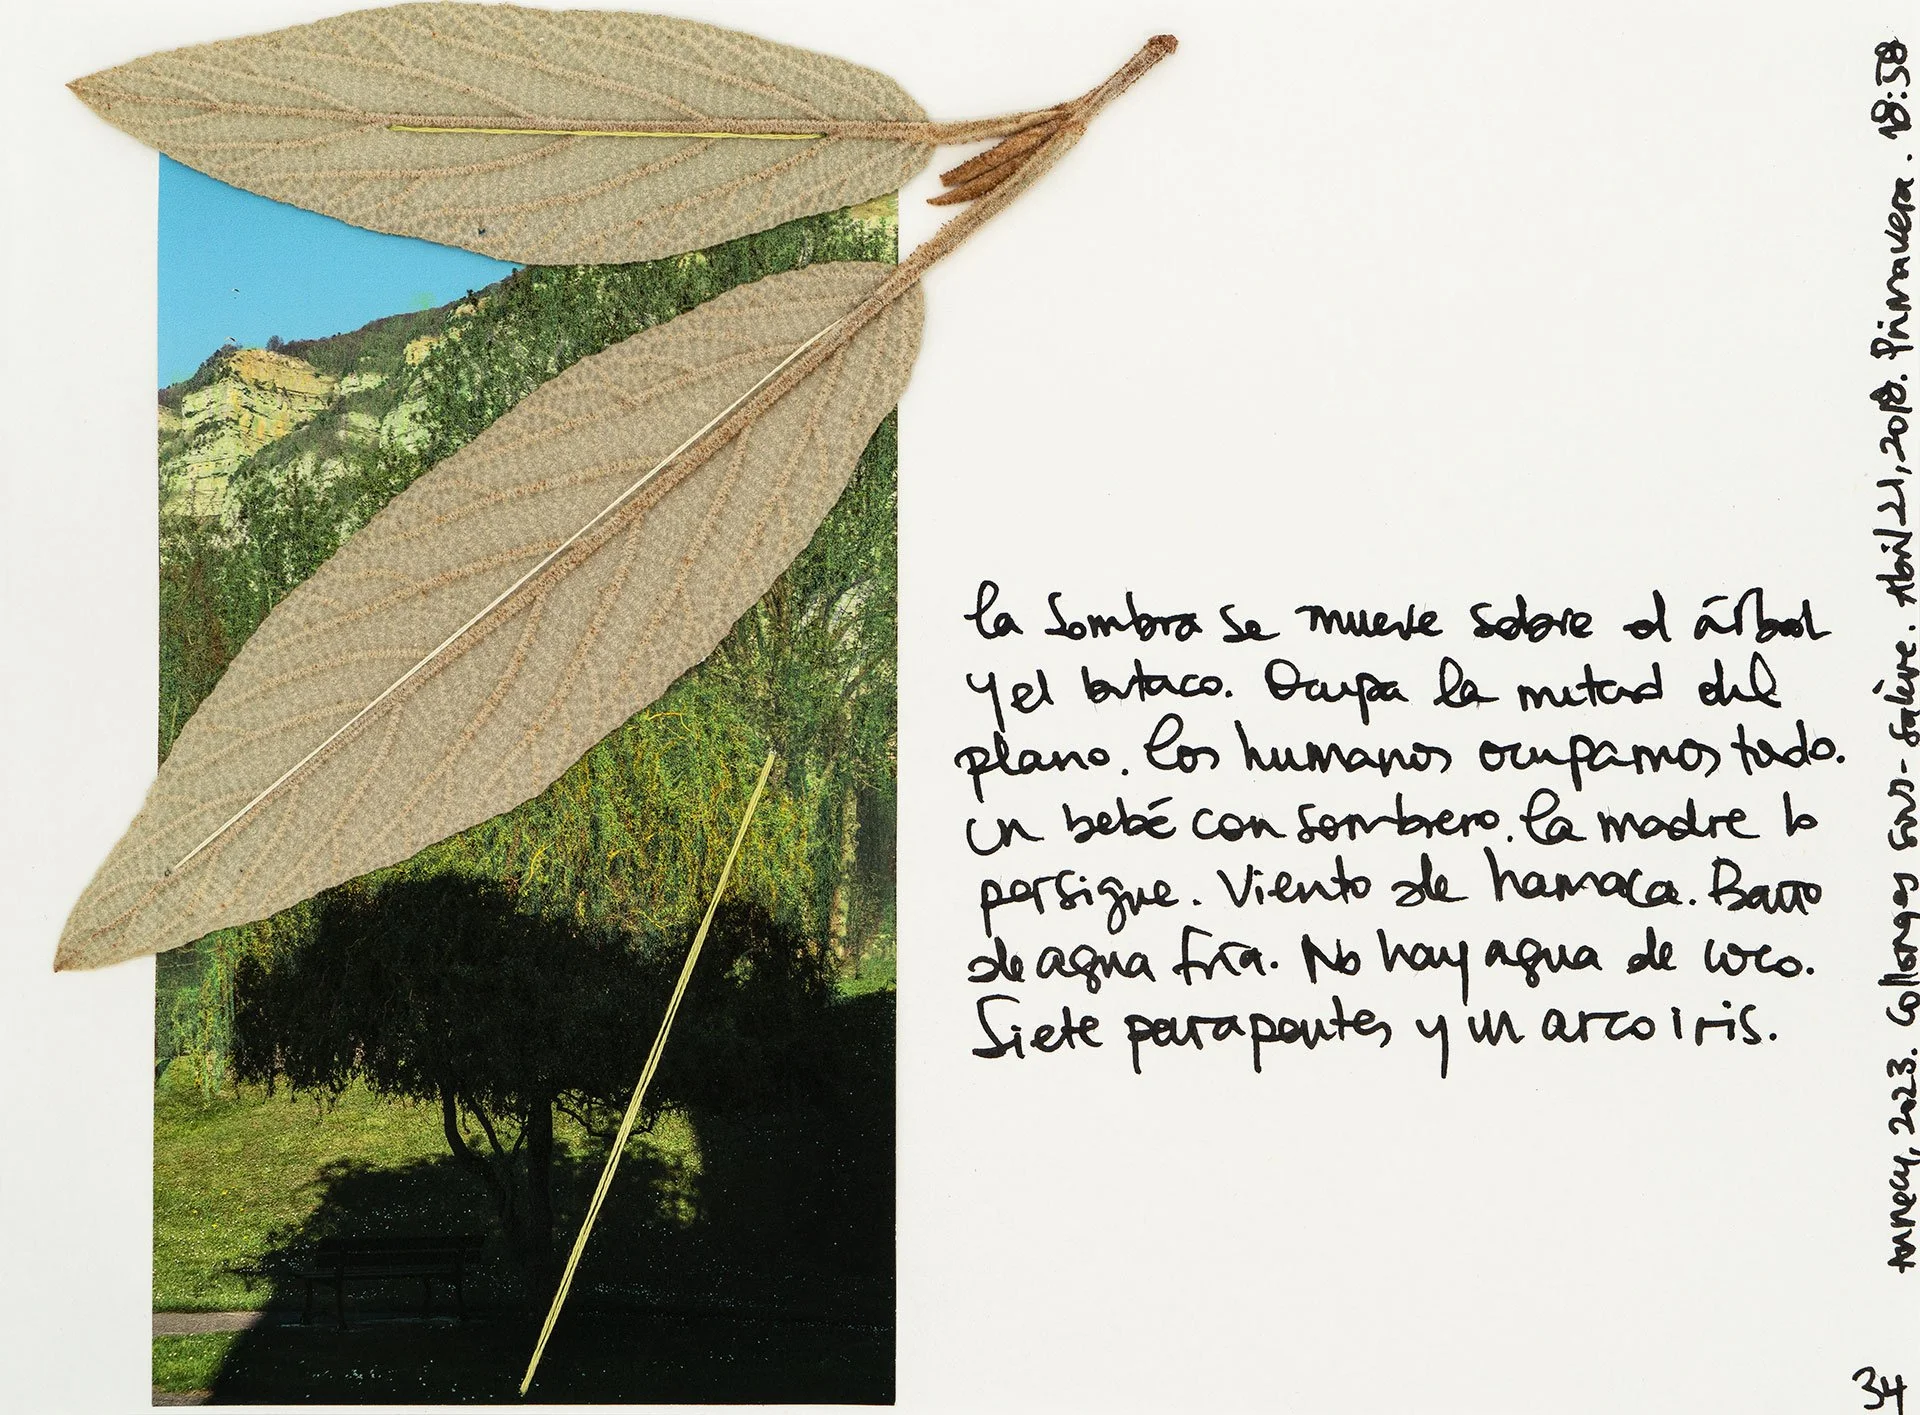 La sombra se mueve sobre el árbol
y el butaco. Ocupa la mitad del
plano. Los humanos ocupamos todo.
Un bebé con sombrero. La madre lo
persigue. Viento de hamaca. Barro
de agua fría. No hay agua de coco.
Siete parapentes y un arcoiris.
Annecy, 2023. Collonges sous-Salève. Abril 21, 2018. Primavera. 18:58
34